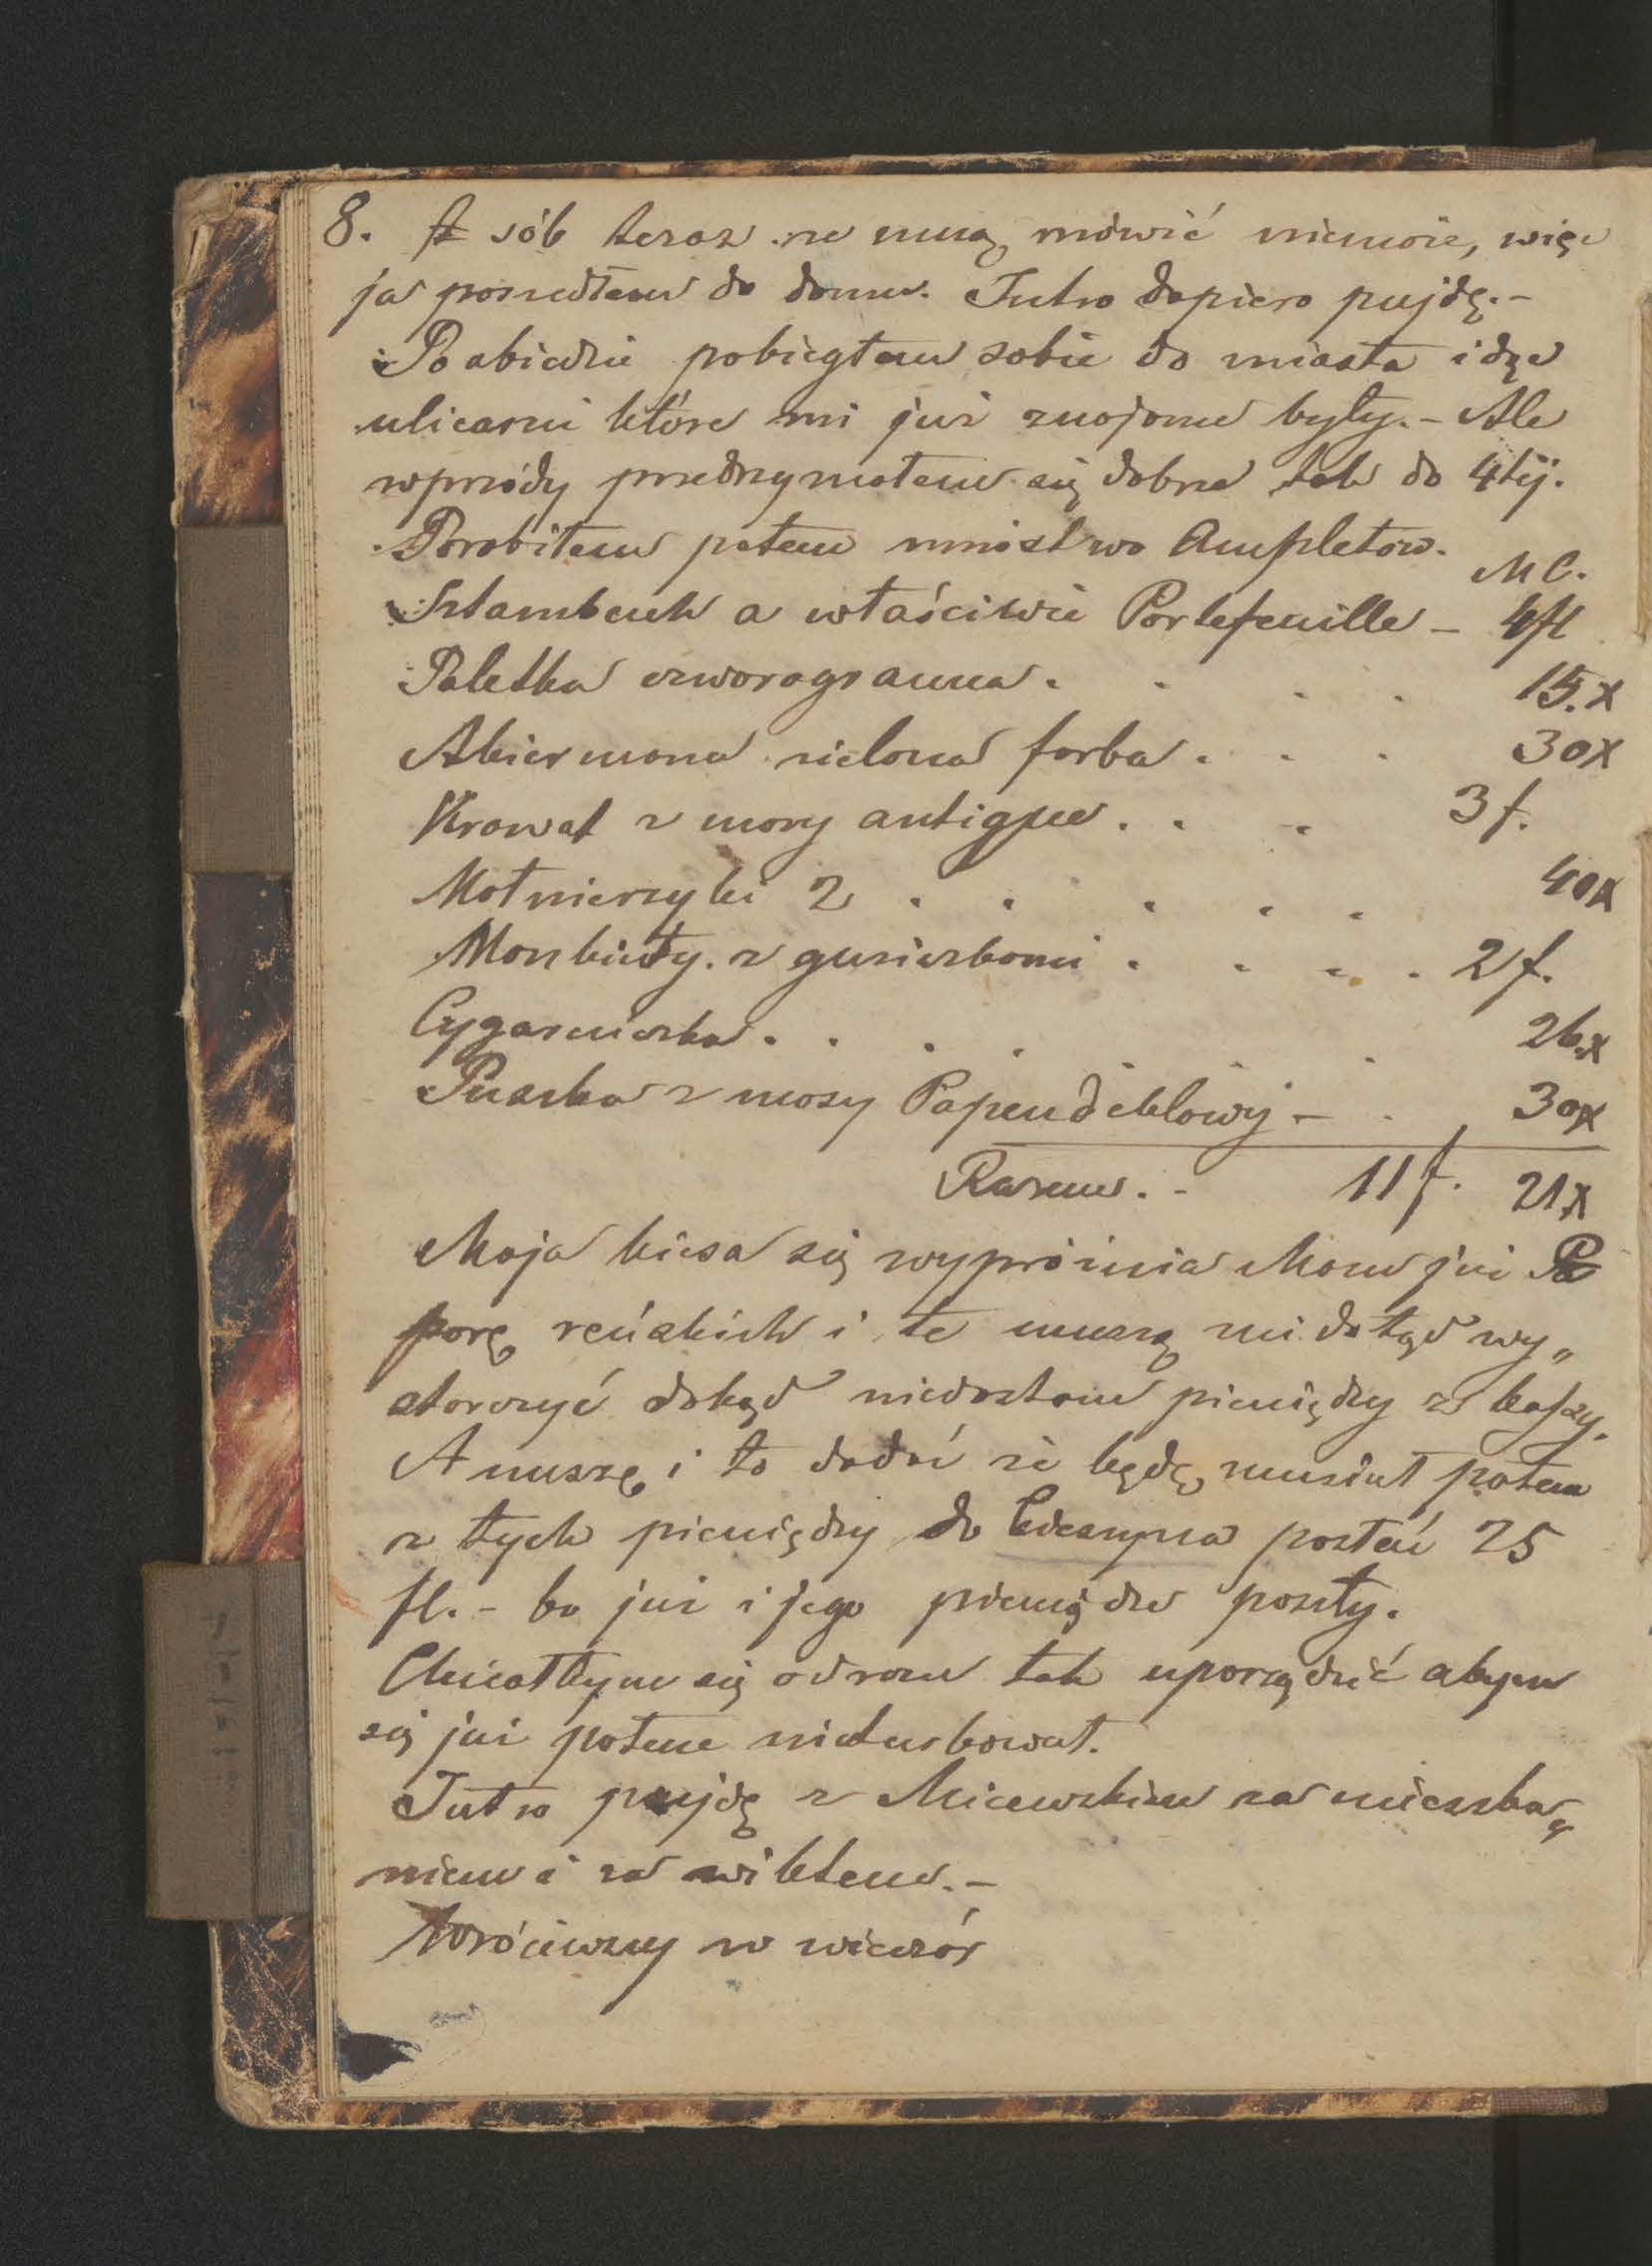 8. sób teraz ze mną mówić niemoże, więc
ja poszedłem do domu. Jutro dopiero pujdę.-
Po obiedzie pobiegłem sobie do miasta idąc
ulicami które mi już znajome były.- Ale
wprzódy przedrzymałem się dobrze tak do 4téj.
Porobiłem potem mnóstwo Ampletów.
MC.
Sztambuch a właściwie Portefeuille - 4fl
Paletka czworogranna . . . . 15.x
Akiermana zielona farba . . . 30x
Krawat z mory antique . . . 3f.
Kołnierzyki 2 . . . . . 40x
Mankiety z guziczkami . . . . 2f.
Cygarniczka . . . . 26.x
Puszka z masy Papendeklowéj - . 30x
Razem. - 11f. 21x
Moja kiesa się wypróżnia Mam już
parę reńskich i te muszą mi dotąd wy„
starczyć dokąd niedostanę pieniędzy z kassy.
A muszę i to dodać że będę musiał potem
z tych pieniędzy do Cieszyna posłać 25
fl. - bo już i jego pieniądze poszły.
Chciałbym się odrazu tak uporządzić abym
się już potem nieturbował.
Jutro pujdę z za mieszka„
niem i za wiktem.-
Wróciwszy w wieczór